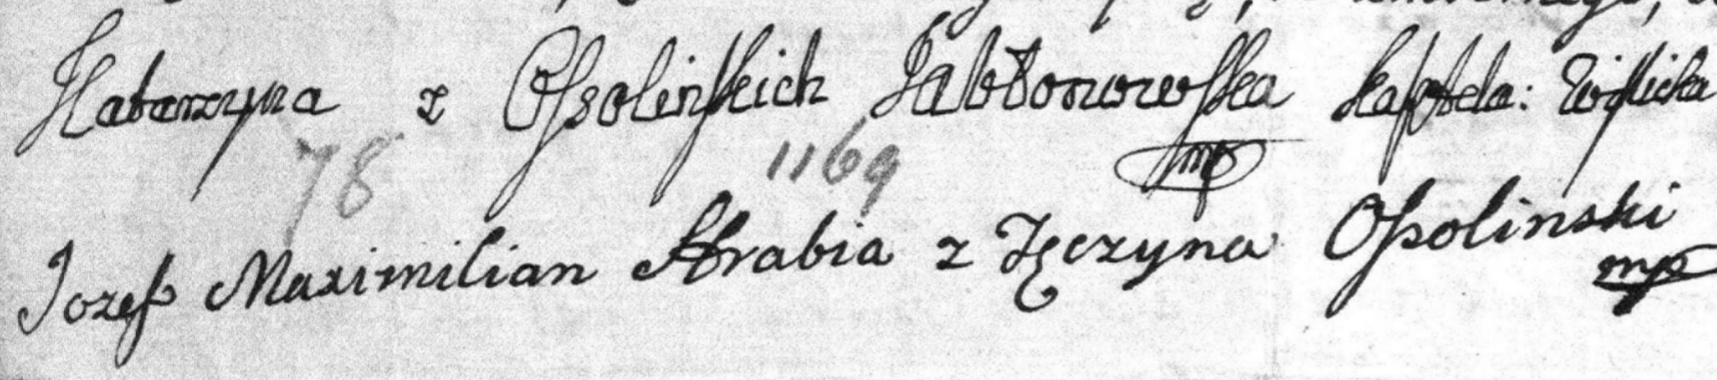 Katarzyna z Ossolińskich Jabłonowska Kasztela: Wislicka
mp
78 1169
Jozef Maximilian Hrabia z Tęczyna Ossolinski
mp